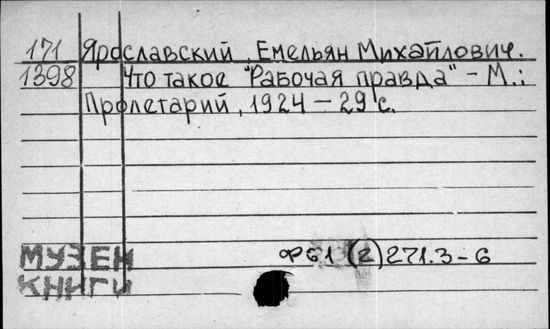 171 Ярославский, Емельян Михайлович.
1398 Что такое "Рабочая правда" - М.:
Пролетарий, 1924 - 29 с.
МУЗЕЙ
КНИГИ
ФБ1 (2) 271.3-6